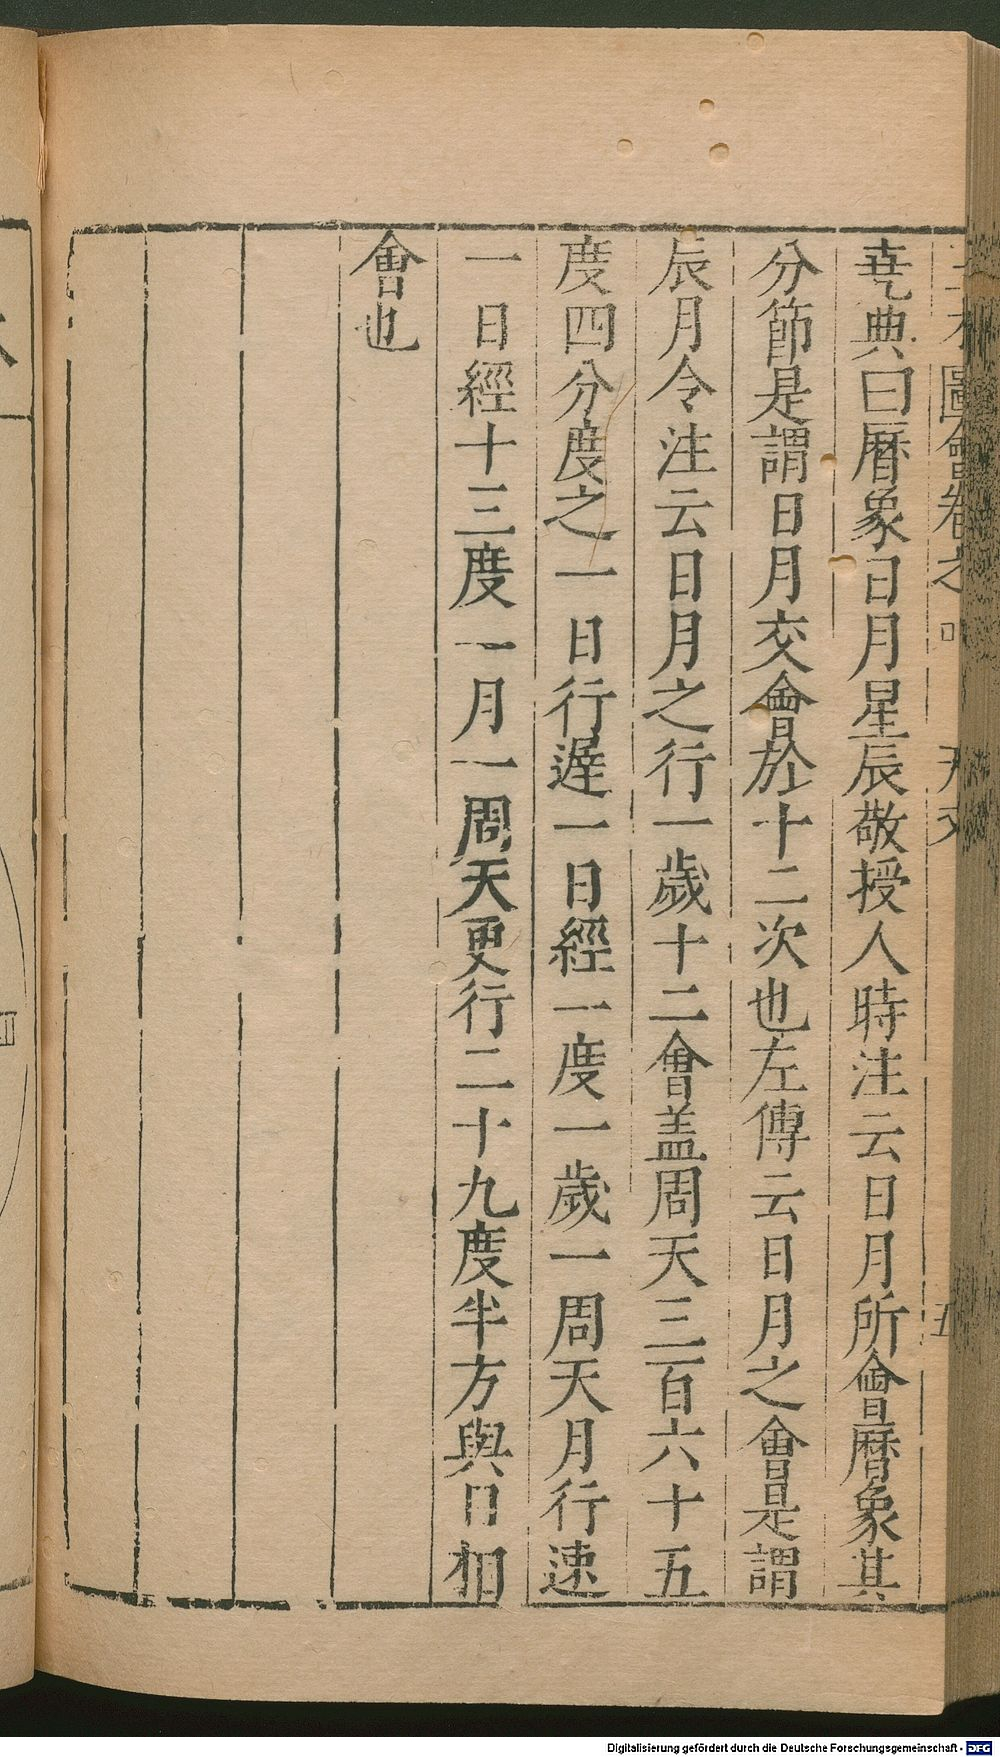 圖會卷之
堯典曰曆象日月星辰敬授人時注云日月所會曆象其
分節是謂日月交會於十二次也左傳云日月之會是謂
辰月令注云日月之行一歲十二會盖周天三百六十五
度四分度之一日行遲一日經一度一歲一周天月行速
一日經十三度一月一周天更行二十九度半方與日相
會也
Digitalisierung gefördert durch die Deutsche Forschungsgemeinschaft - DFG